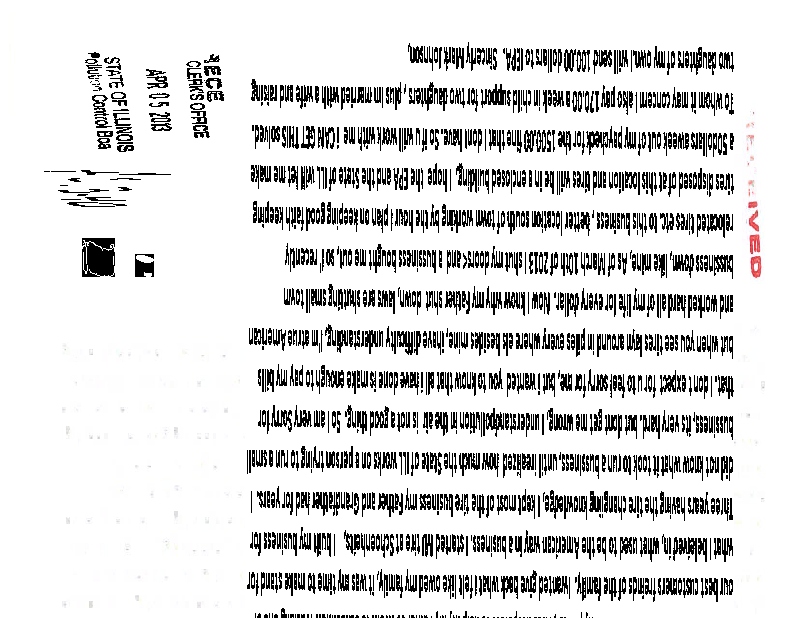 our best customers freinds of the family, I wanted give back what I felt like I owed my family, it was my time to make stand for
what I beleived in, what used to be the American way in a bussiness. I started MJ tire at Schoenheits, I built my business for
Three years having the tire changing knowledge, I kept most of the tire business my Father and Grandfather had for years. I
did not know what it took to run a bussiness, until irealized how much the State of ILL works on a person trying to run a small
bussiness, its very hard, but dont get me wrong, I understandpollution in the air is not a good thing. So I am very Sorry for
that. I don t expect for u to feel sorry for me, but i wanted you to know that all i have done is make enough to pay my bills
but when you see tires layn around in pilles every where els besides mine, ihave difficulty understanding, I'm atrue American
and worked hard all of my life for every dollar. Now I know why my Father shut down, laws are shutting small town
bussiness down, like mine, As of March 10th of 2013 I shut my doors< and a bussiness bought me out, so I recently
relocated tires etc to this business, better location south of town working by the hour I plan on keeping good faith keeping
tires disposed of at this location and tires will be in a enclosed building, I hope the EPA and the State of ILL will let me make
a 50dollars aweek out of my paycheck for the 1500.00 fine that I dont have. So if u will work with me I CAN GET THIS solved.
To whom it may concern i also pay 170.00 a week in child support for two daughters, plus im married with a wife and raising
two daughters of my own, will send 100.00 dollars to IEPA. Sincerly Mark Johnsn,
CLERK'S OFFICE
APR 05 2013
STATE OF ILLINOIS
Control Boa
IVED